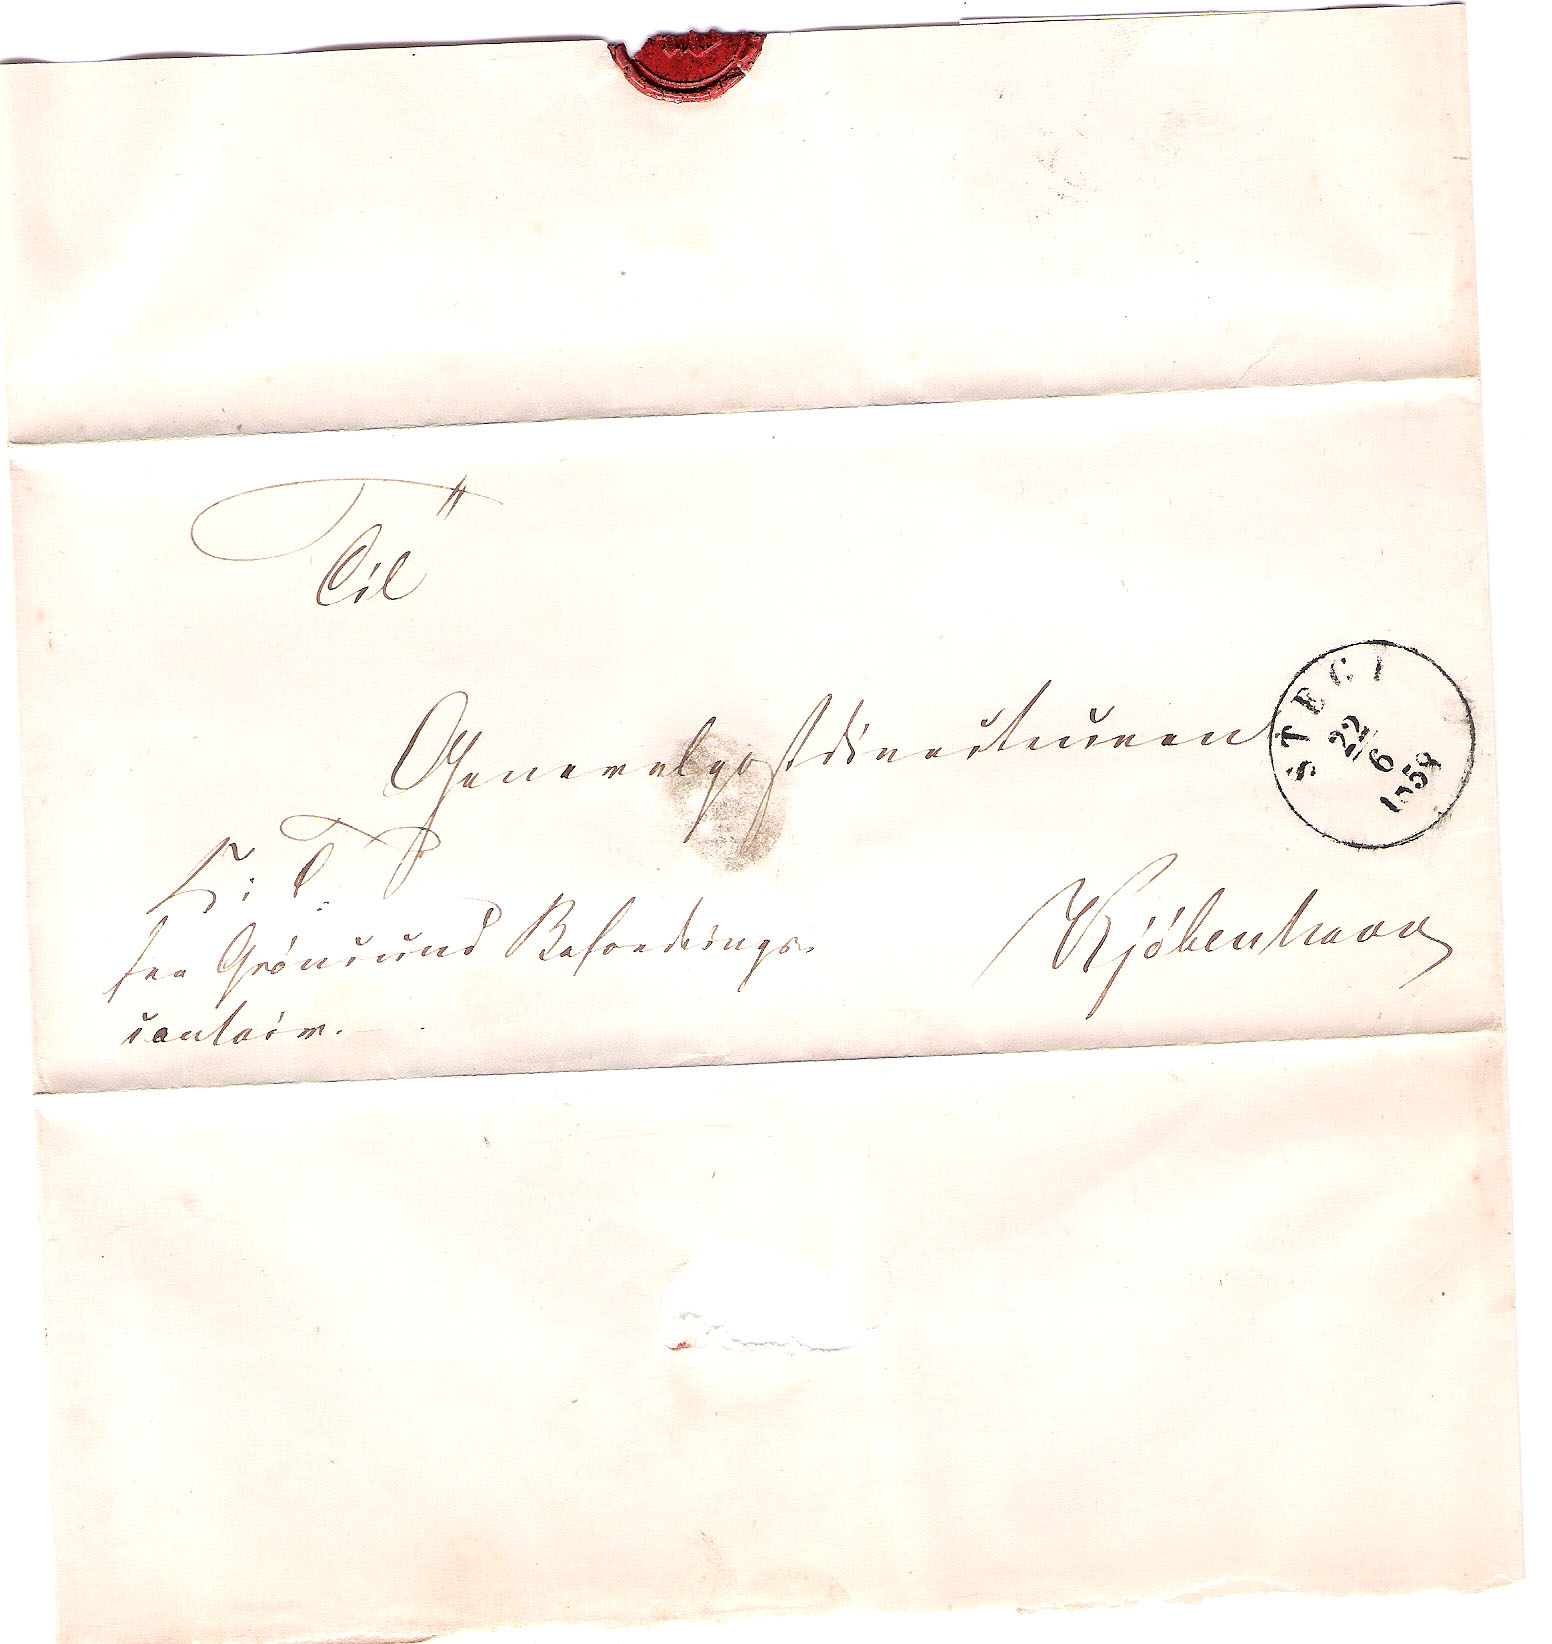 Til
Generalpostdirecteuren
K: T.
fra Grönsund Befordrings-
contoir.
Kjöbenhavn
STEGE
22/6
1858